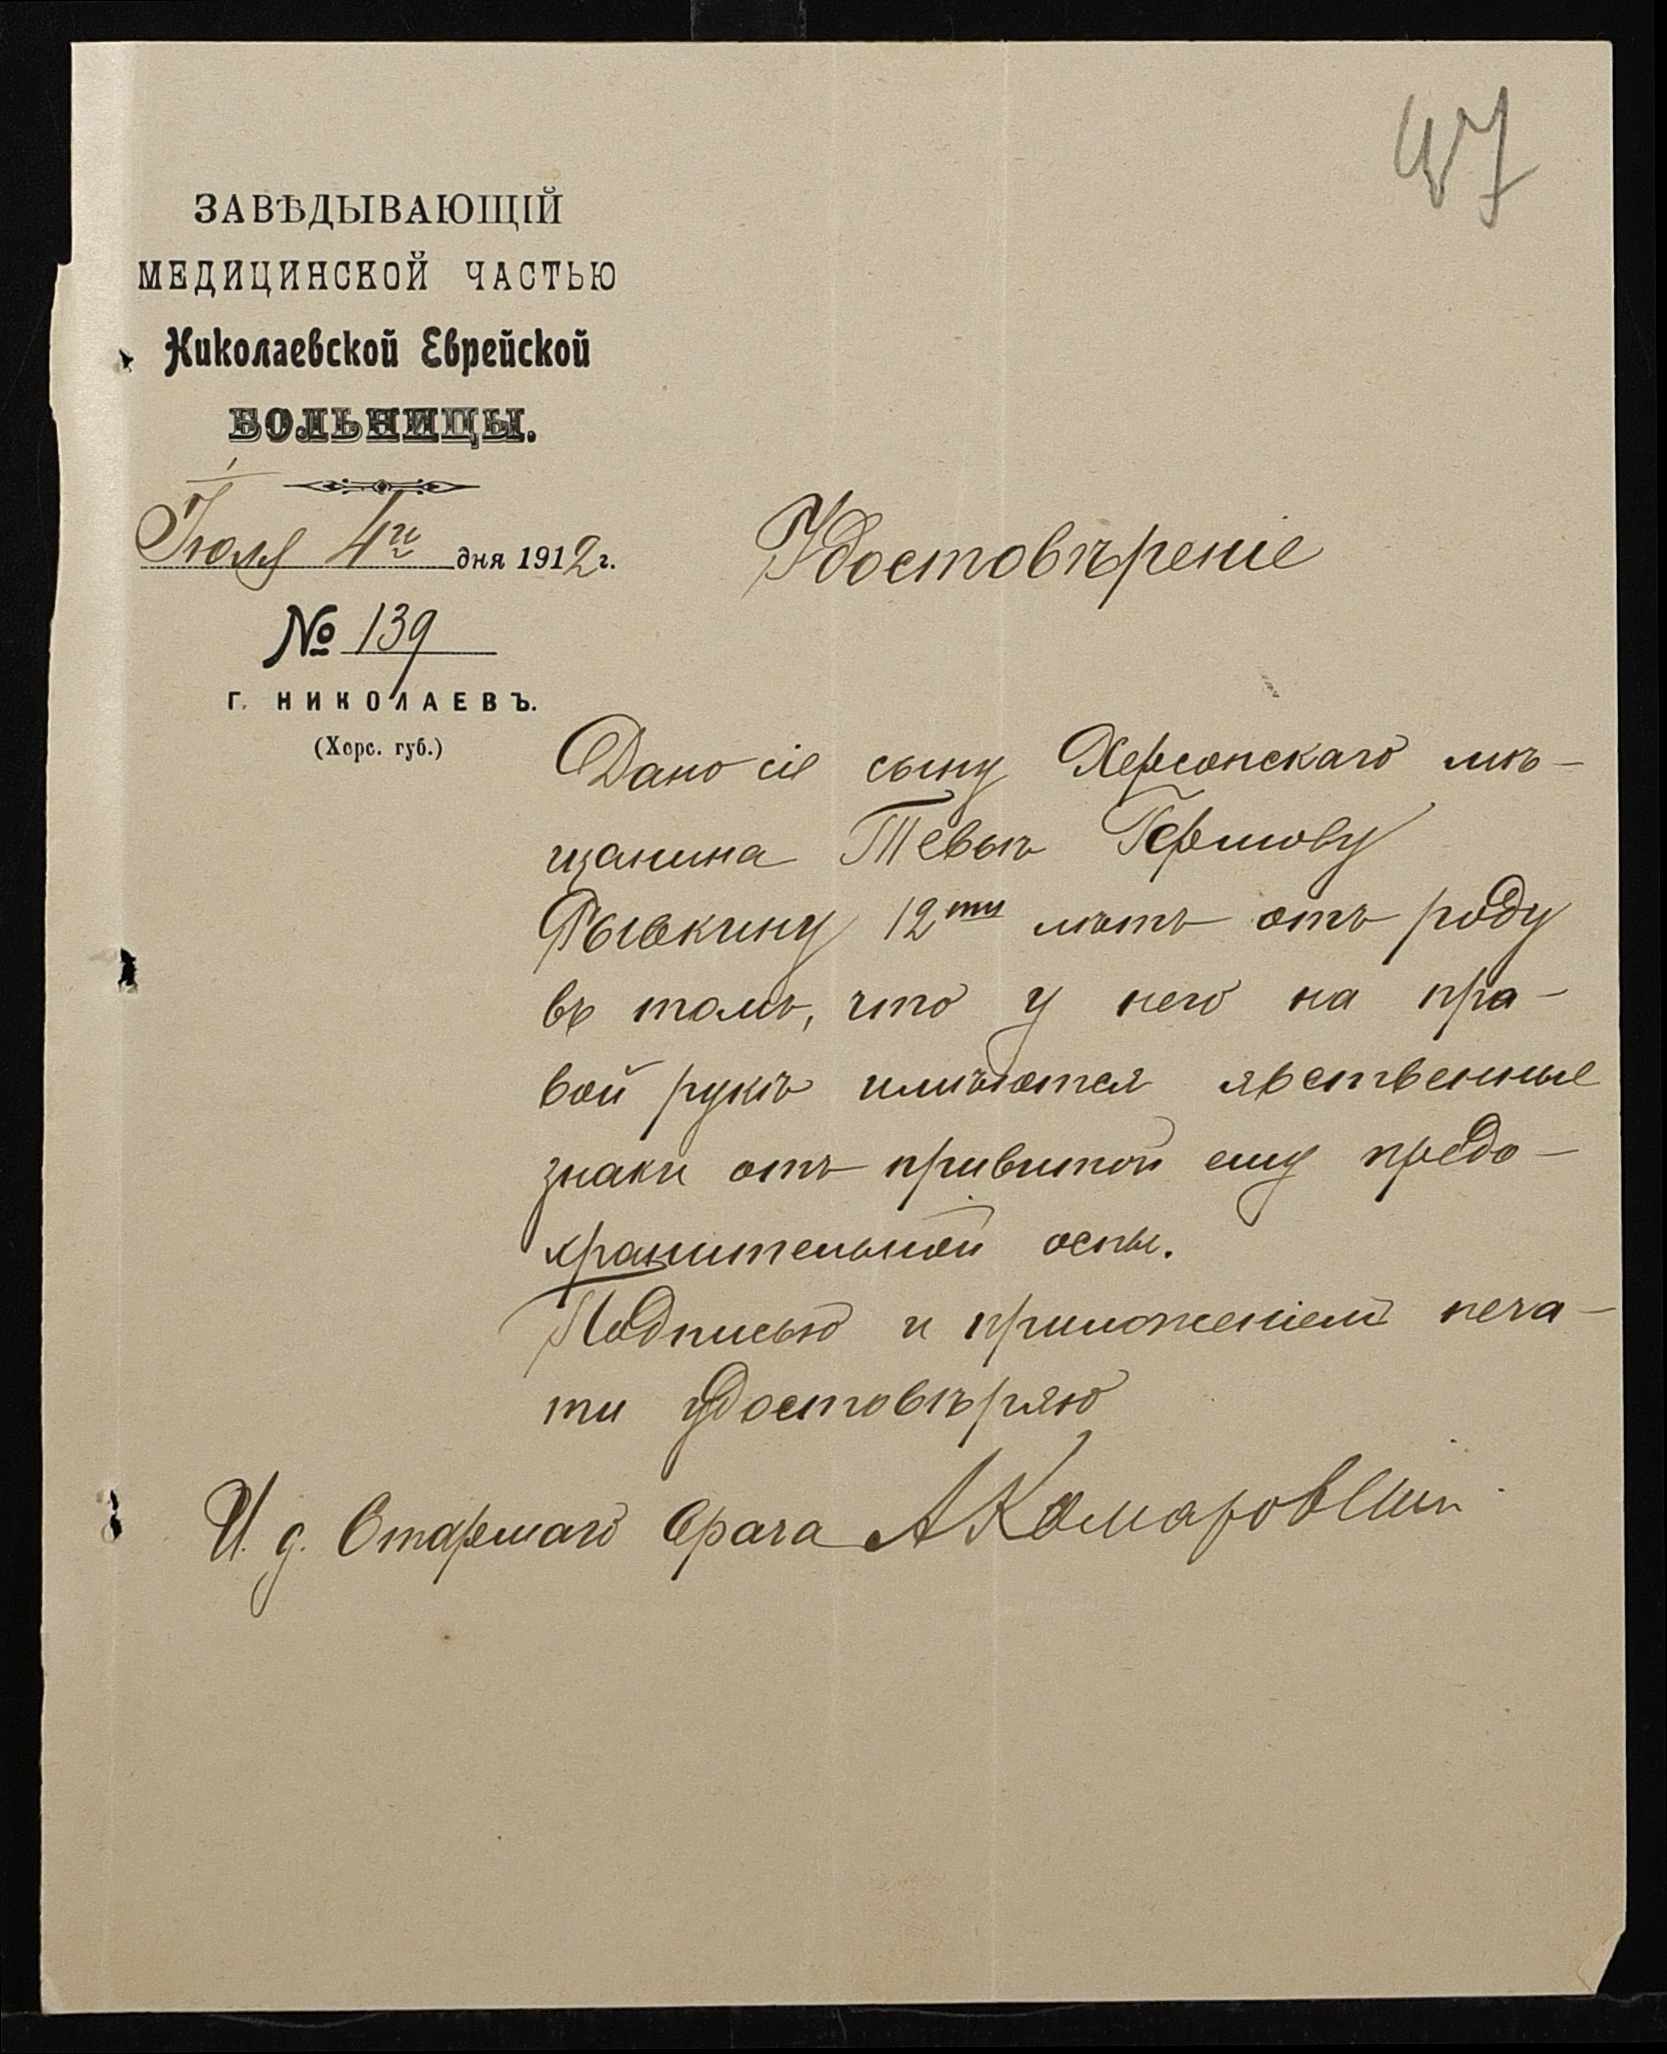 47
ЗАВѢДЫВАЮЩІЙ
МЕДИЦИНСКОЙ ЧАСТЬЮ
Николаевской Еврейской
БОЛЬНИЦЫ.
Іюля 4го дня 1912 г.
№ 139
Г. НИКОЛАЕВЪ.
(Херс. губ.)
Удостовѣреніе
Дано сіе сыну Херсонскаго мѣ-
щанина Тевьѣ Гершову
Рывкину 12ти лѣтъ отъ роду
въ томъ, что у него на пра-
вой рукѣ имѣются явственные
знаки отъ привитой ему предо-
хранительной оспы.
Подписью и приложеніемъ печа-
ти удостовѣряю
И. д. Старшаго врача А Комаровскій